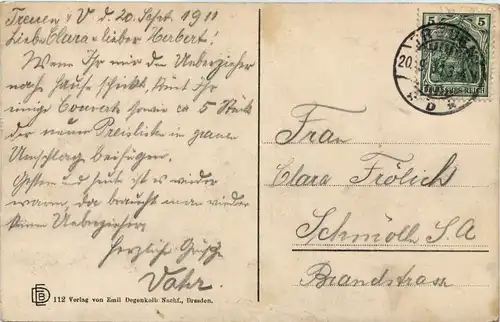 Treuen i V d. 20. Sept. 1911
Liebe Clara u lieber Herbert!
Wenn Ihr mir den Ueberzieher
nach Hause schickt, könnt Ihr
einige Couverts sowie ca 5 Stück
der neuen Preislisten in grauen
Umschlag beifügen.
Gestern und heut ist es wieder
warm, da braucht man wieder
keinen Ueberzieher.
Herzliche Grüße
Vater.
5 5
DEUTSCHES REICH
20.9.
Frau
Clara Frölich
Schmölln S.A
Brandstrasse
112 Verlag von Emil Degenkolb Nachf., Dresden.